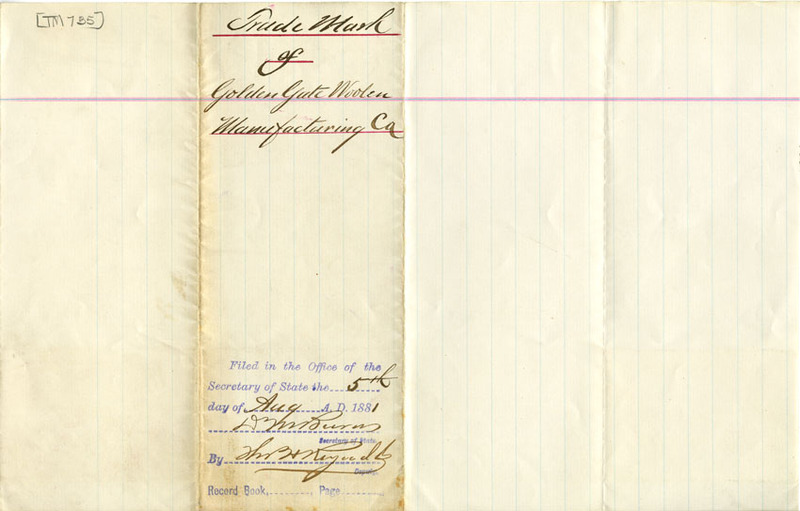 [TM 735]
Trade Mark
of
Golden Gate Woolen
Manufacturing Co
Filed in the Office of the
Secretary of State the 5th
day of Aug A. D. 1881
D M Burns
Secretary of State.
By Thos H Reynolds
Deputy.
Record Book, ........, Page ........